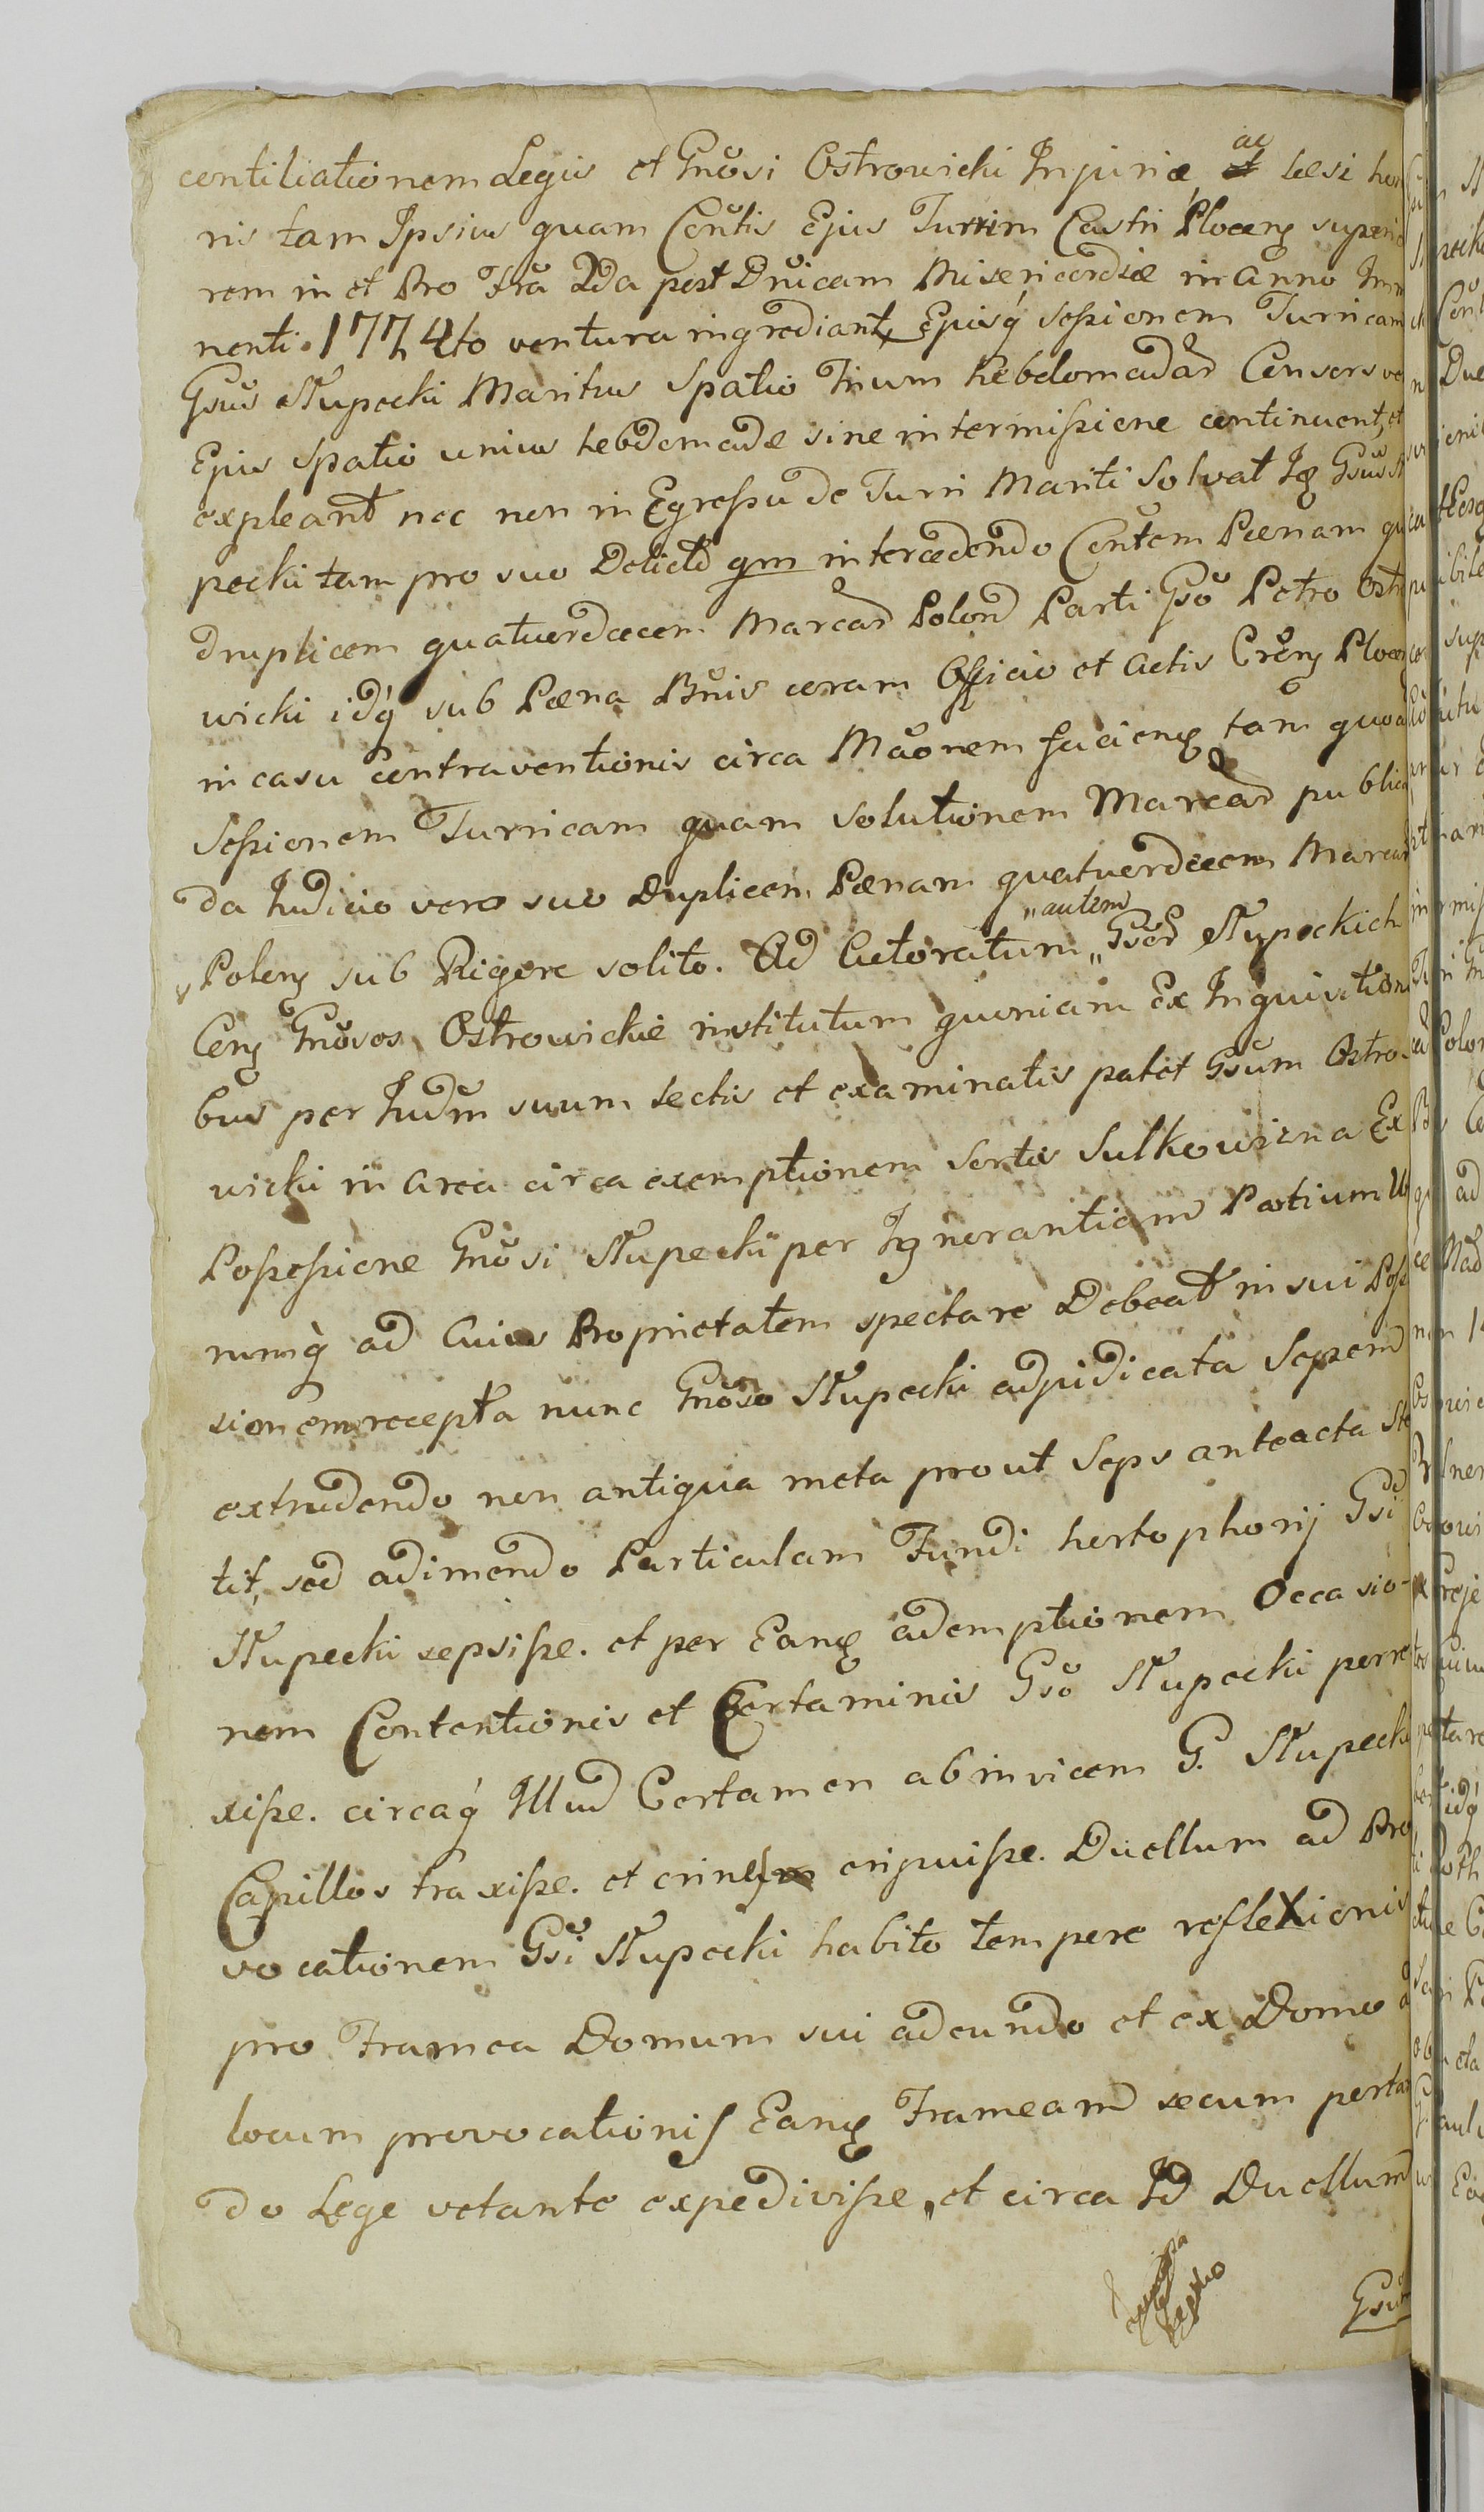 centiliationem Legis et Gnosi Ostrowicki Injuriæ ac læsi ho
ris tam Ipsius quam Contis Ejus Turrim Castri Plocens superio
rem in et Pro Fra 2da post Dnicam Misericordiæ in Anno Immi
nenti 1774to ventura ingrediant, Ejusq sessionem Turricam
Gsus Słupecki Maritus Spatio Trium hebdomadar Consors ve
Ejus Spatio unius hebdomadæ sine intermissione continuent, et
expleant nec non in Egressu de Turri Mariti Solvat Ig Gsus Sł
pecki tam pro suo Delicto qm intercedendo Contem Pænam qu
druplicem quatuordecem Marcar Polon Parti Gso Petro Ostro
wicki idq sub Pæna Bnis coram Officio et Actis Crens Plocen
in casu contraventionis circa Maonem faciens tam quoad
Sessionem Turricam quam solutionem Marcar publican
da Judicio vero suo Duplicem Pænam quatuordecem Marcar
Polens sub Rigore solito. Ad Actoratum „autem Gsor Słupeckich
Cens Gnosos Ostrowickie institutum quoniam Ex Inquisitioni
bus per Judm suum lectis et examinatis patet Gsum Ostro-
wicki in Area circa exemptionem Sortis Sulkowizna Ex
Possessione Gnosi Słupeckii per Ignorantiam Partium U
rumq ad Cuius Proprietatem spectare Debeat in sui Poss
sionem recepta nunc Gnoso Słupecki adjudicata Sepem
extrudendo non antiqua meta prout Seps anteacta ste
tit, sed adimendo Particulam Fundi hortophorij Gsi
Słupecki sepsisse. et per Eans ademptionem Occasio-
nem Contentionis et Certaminis Gso Słupecki porre
xisse. circaq Illud Certamen abinvicem G. Słupecki
Capillos traxisse. et crines eripuisse. Duellum ad Pro
vocationem Gsi Słupecki habito tempore reflexionis
pro Framea Domum sui adeundo et ex Domo a
locum provocationis Eans Frameam secum portan
do Lege vetante expedivisse „et circa Id Duellum
Gsus